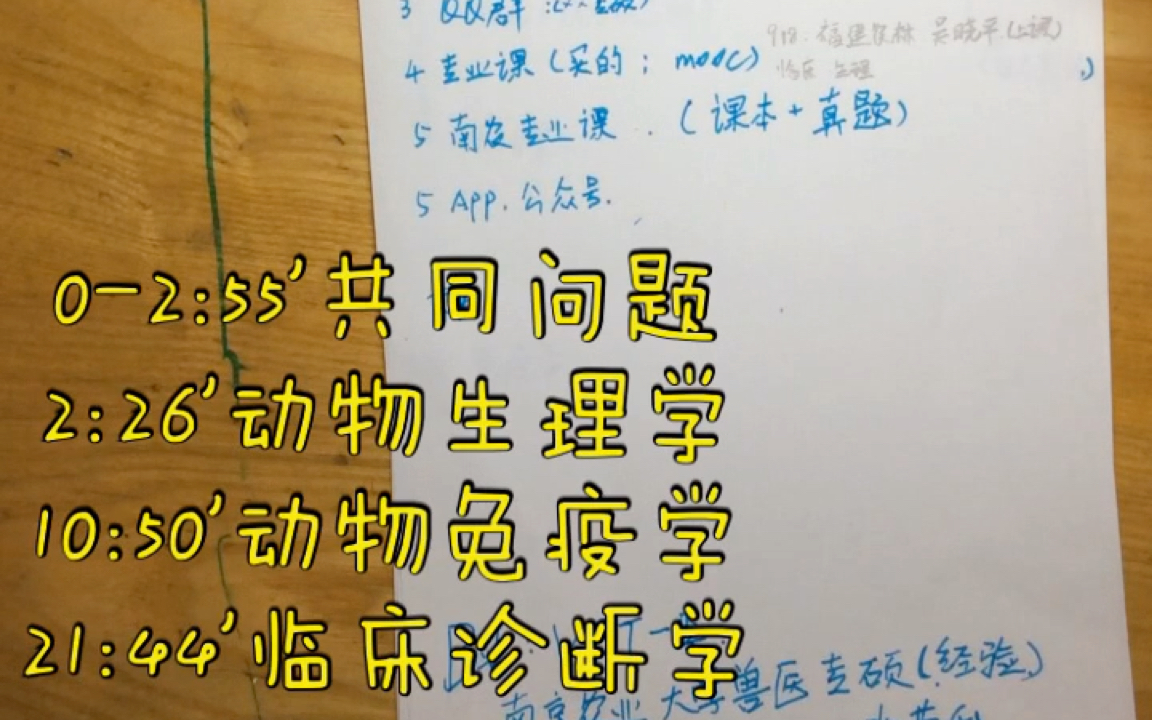 3 QQ群
918.福建农林 吴晓平(上课)
4 专业课(买的; mooc)
临床 生理
5 南农专业课.(课本+真题)
5 App.公众号.
0-2:55'共同问题
2:26'动物生理学
10:50'动物免疫学
21:44'临床诊断学
南京农业大学兽医专硕(经验)